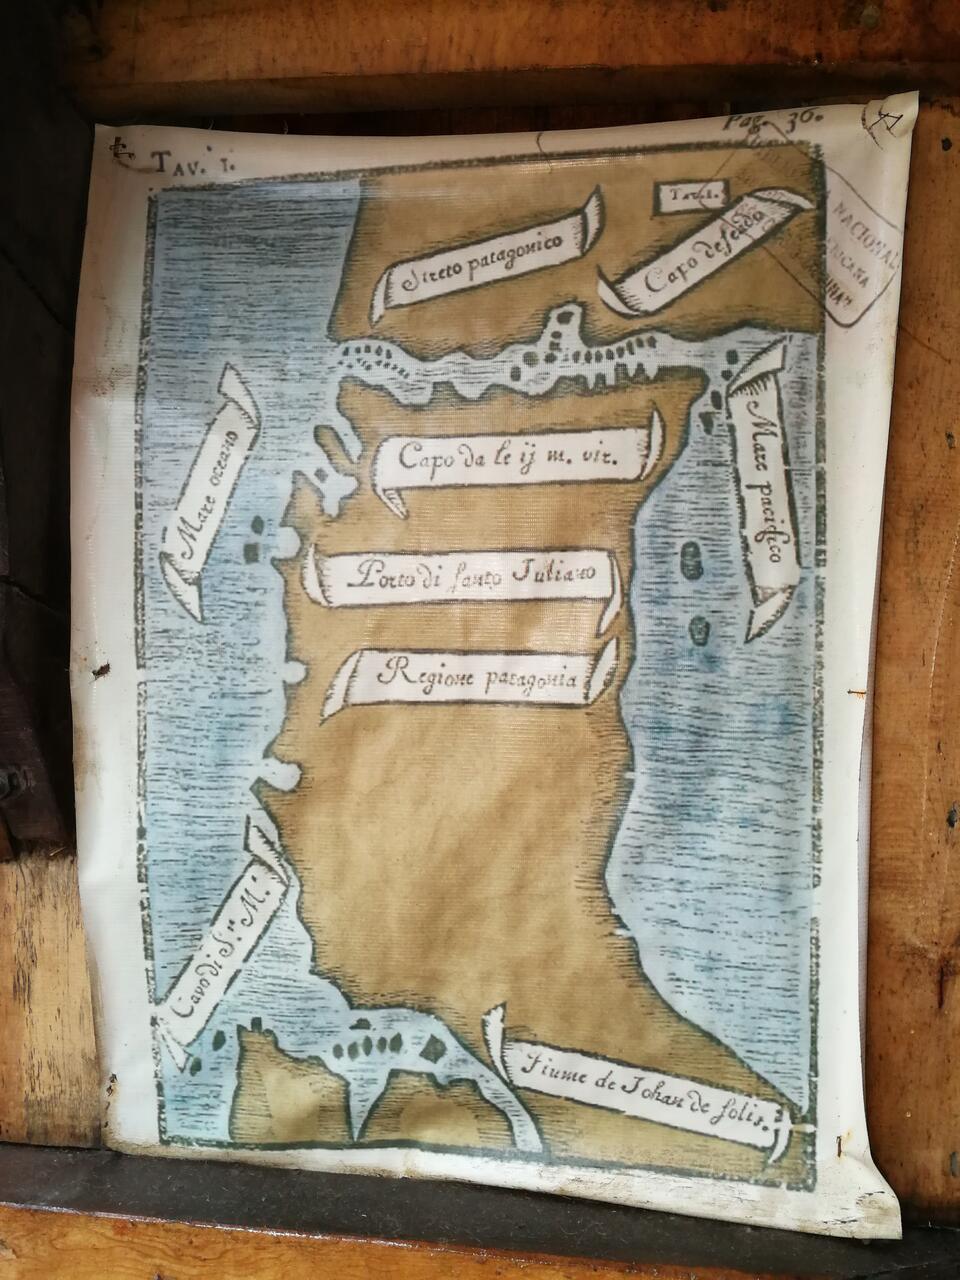 Pag. 36.
TAV. I.
TAV. I.
Streto patagonico
Capo deseado
NACIONAL
Mare oceano
Capo da le ij m. vir.
Mare pacifico
Porto di santo Juliano
Regione patagonia
Cavo di S.ta M.a
Fiume de Johan de solis.